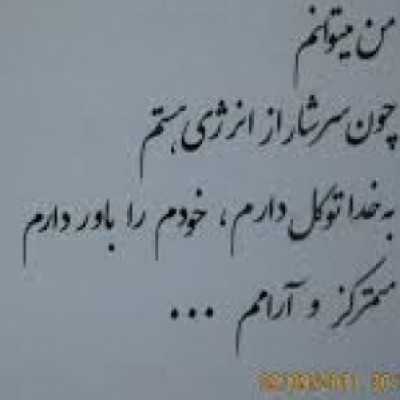 من میتوانم
چون سرشار از انرژی هستم
به خدا توکل دارم، خودم را باور دارم
متمرکز و آرامم ...